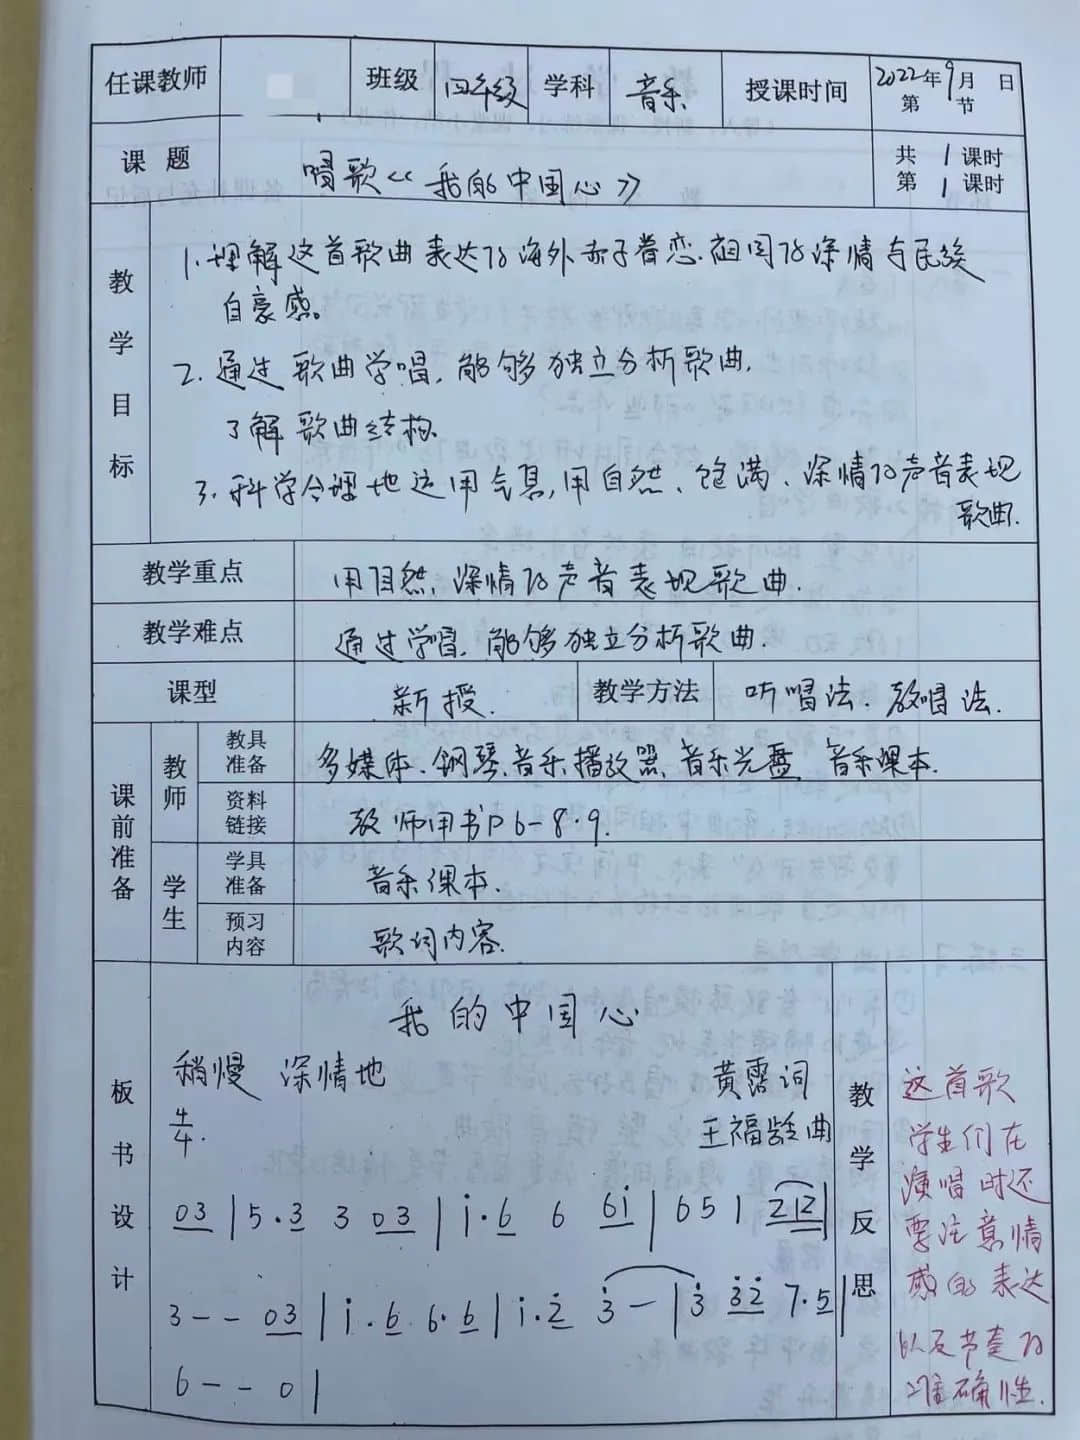 任课教师 班级 四年级 学科 音乐 授课时间 2022年9月 日
第 节
课题 唱歌《我的中国心》 共 1 课时
第 1 课时
教学目标
1. 理解这首歌曲表达的海外赤子眷恋祖国的深情与民族
自豪感。
2. 通过歌曲学唱,能够独立分析歌曲.
了解歌曲结构.
3. 科学合理地运用气息,用自然、饱满、深情的声音表现
歌曲.
教学重点 用自然,深情的声音表现歌曲.
教学难点 通过学唱,能够独立分析歌曲.
课型 新授. 教学方法 听唱法.教唱法.
课前准备
教师
教具准备 多媒体、钢琴、音乐播放器、音乐光盘、音乐课本.
资料链接 教师用书P6-8·9.
学生
学具准备 音乐课本.
预习内容 歌词内容.
板书设计
我的中国心
稍慢 深情地 黄霑词
4/4. 王福龄曲
03 | 5·3 3 03 | i·6 6 6i | 6 5 1 212 |
3 - - 03 | i·6 6·6 | i·2 3 - | 3 32 7·5 |
6 - - 0 |
教学反思
这首歌
学生们在
演唱时还
要注意情
感的表达
以及节奏的
准确性.